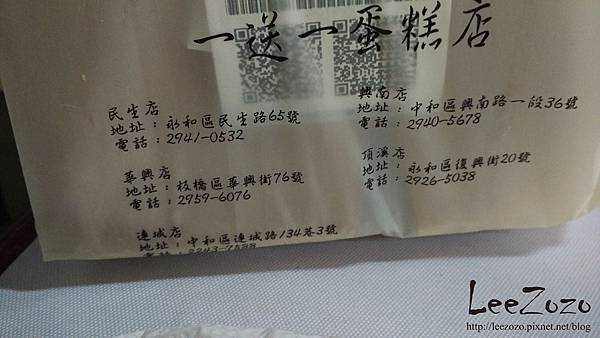 一送一蛋糕店
民生店
地址：永和區民生路65號
電話：2941-0532
興南店
地址：中和區興南路一段36號
電話：2940-5678
華興店
地址：板橋區華興街76號
電話：2959-6076
頂溪店
地址：永和區復興街20號
電話：2926-5038
連城店
地址：中和區連城路134巷3號
LeeZozo
http://leezozo.pixnet.net/blog